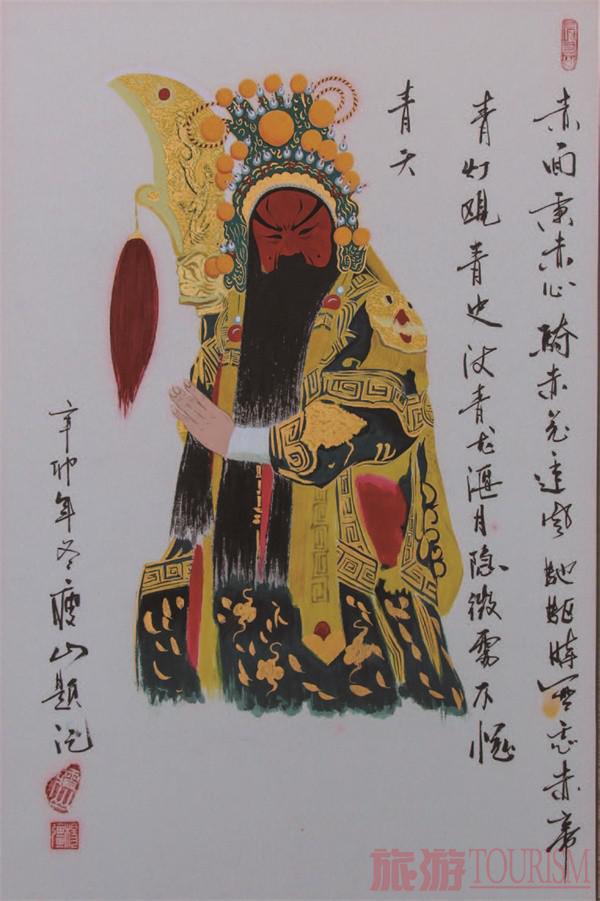 赤面秉赤心骑赤兔追风驰驱时无忘赤帝
青灯观青史仗青龙偃月隐微处不愧
青天
辛卯年冬癯山题记
旅游TOURISM